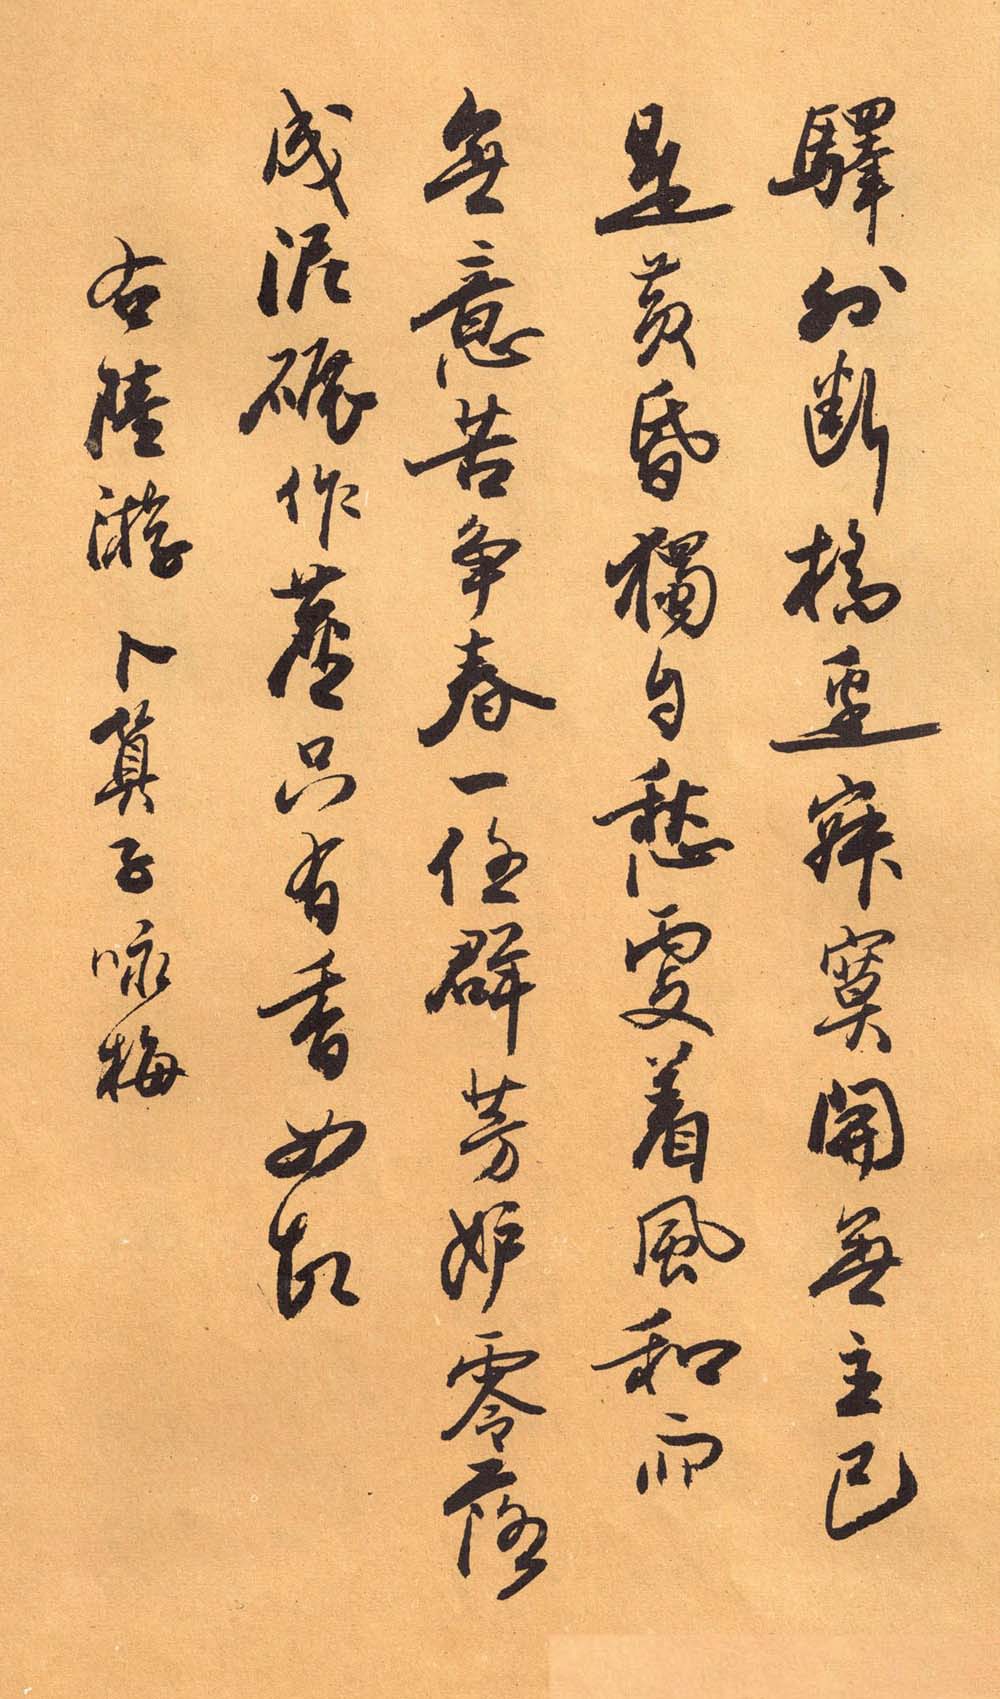 驛外斷橋邊寂寞開無主已
是黃昏獨自愁更着風和雨
無意苦爭春一任群芳妒零落
成泥碾作塵只有香如故
右陸游卜算子咏梅